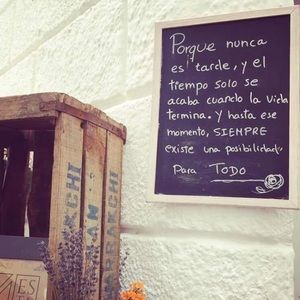 Porque nunca
es tarde, y el
tiempo solo se
acaba cuando la vida
termina. Y hasta ese
momento, SIEMPRE
existe una posibilidad
Para TODO